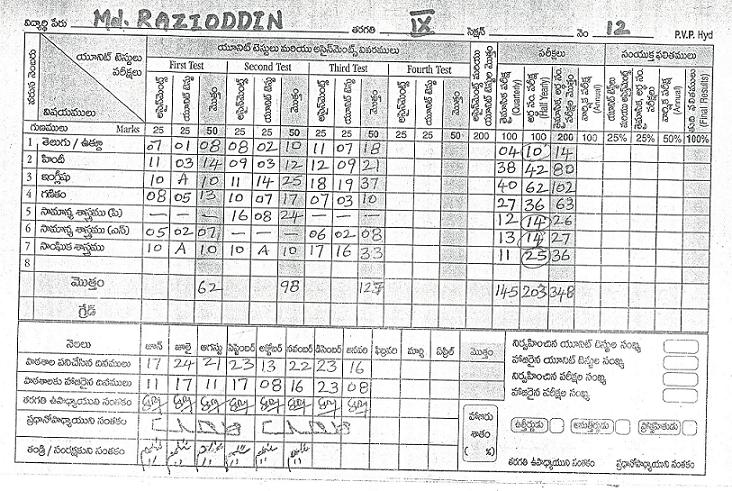 విద్యార్థి పేరు Md. RAZIODDIN తరగతి IX సెక్షన్ నెం 12 P.V.P. Hyd
వరుస నెంబరు యూనిట్ టెస్టులు పరీక్షలు యూనిట్ టెస్టులు మరియు అసైన్‌మెంట్స్ వివరములు పరీక్షలు సంయుక్త ఫలితములు
విషయములు First Test Second Test Third Test Fourth Test
అసైన్‌మెంట్స్ యూనిట్ టెస్టు మొత్తం అసైన్‌మెంట్స్ యూనిట్ టెస్టు మొత్తం అసైన్‌మెంట్స్ యూనిట్ టెస్టు మొత్తం అసైన్‌మెంట్స్ యూనిట్ టెస్టు మొత్తం (Quarterly) (Half Yearly) (Annual) (Annual) (Final Results)
గుణములు Marks 25 25 50 25 25 50 25 25 50 25 25 50 200 100 100 200 100 25% 25% 50% 100%
1 తెలుగు / ఉర్దూ 07 01 08 08 02 10 11 07 18 04 10 14
2 హిందీ 11 03 14 09 03 12 12 09 21 38 42 80
3 ఇంగ్లీషు 10 A 10 11 14 25 18 19 37 40 62 102
4 గణితం 08 05 13 10 07 17 07 03 10 27 36 63
5 సామాన్య శాస్త్రము (పి) — — — 16 08 24 — — — 12 14 26
6 సామాన్య శాస్త్రము (ఎన్) 05 02 07 — — — 06 02 08 13 14 27
7 సాంఘిక శాస్త్రము 10 A 10 10 A 10 17 16 33 11 25 36
8
మొత్తం 62 98 127 145 203 348
గ్రేడ్
నెలలు జూన్ జూలై ఆగస్టు సెప్టెంబర్ అక్టోబర్ నవంబర్ డిసెంబర్ జనవరి ఫిబ్రవరి మార్చి ఏప్రిల్ మొత్తం
పాఠశాల పనిచేసిన దినములు 17 24 21 23 13 22 23 16
పాఠశాలకు హాజరైన దినములు 11 17 11 17 08 16 23 08
తరగతి ఉపాధ్యాయుని సంతకం
ప్రధానోపాధ్యాయుని సంతకం
తండ్రి / సంరక్షకుని సంతకం
నిర్వహించిన యూనిట్ టెస్టుల సంఖ్య
హాజరైన యూనిట్ టెస్టుల సంఖ్య
నిర్వహించిన పరీక్షల సంఖ్య
హాజరైన పరీక్షల సంఖ్య
హాజరు శాతం ( %)
ఉత్తీర్ణుడు అనుత్తీర్ణుడు
తరగతి ఉపాధ్యాయుని సంతకం ప్రధానోపాధ్యాయుని సంతకం